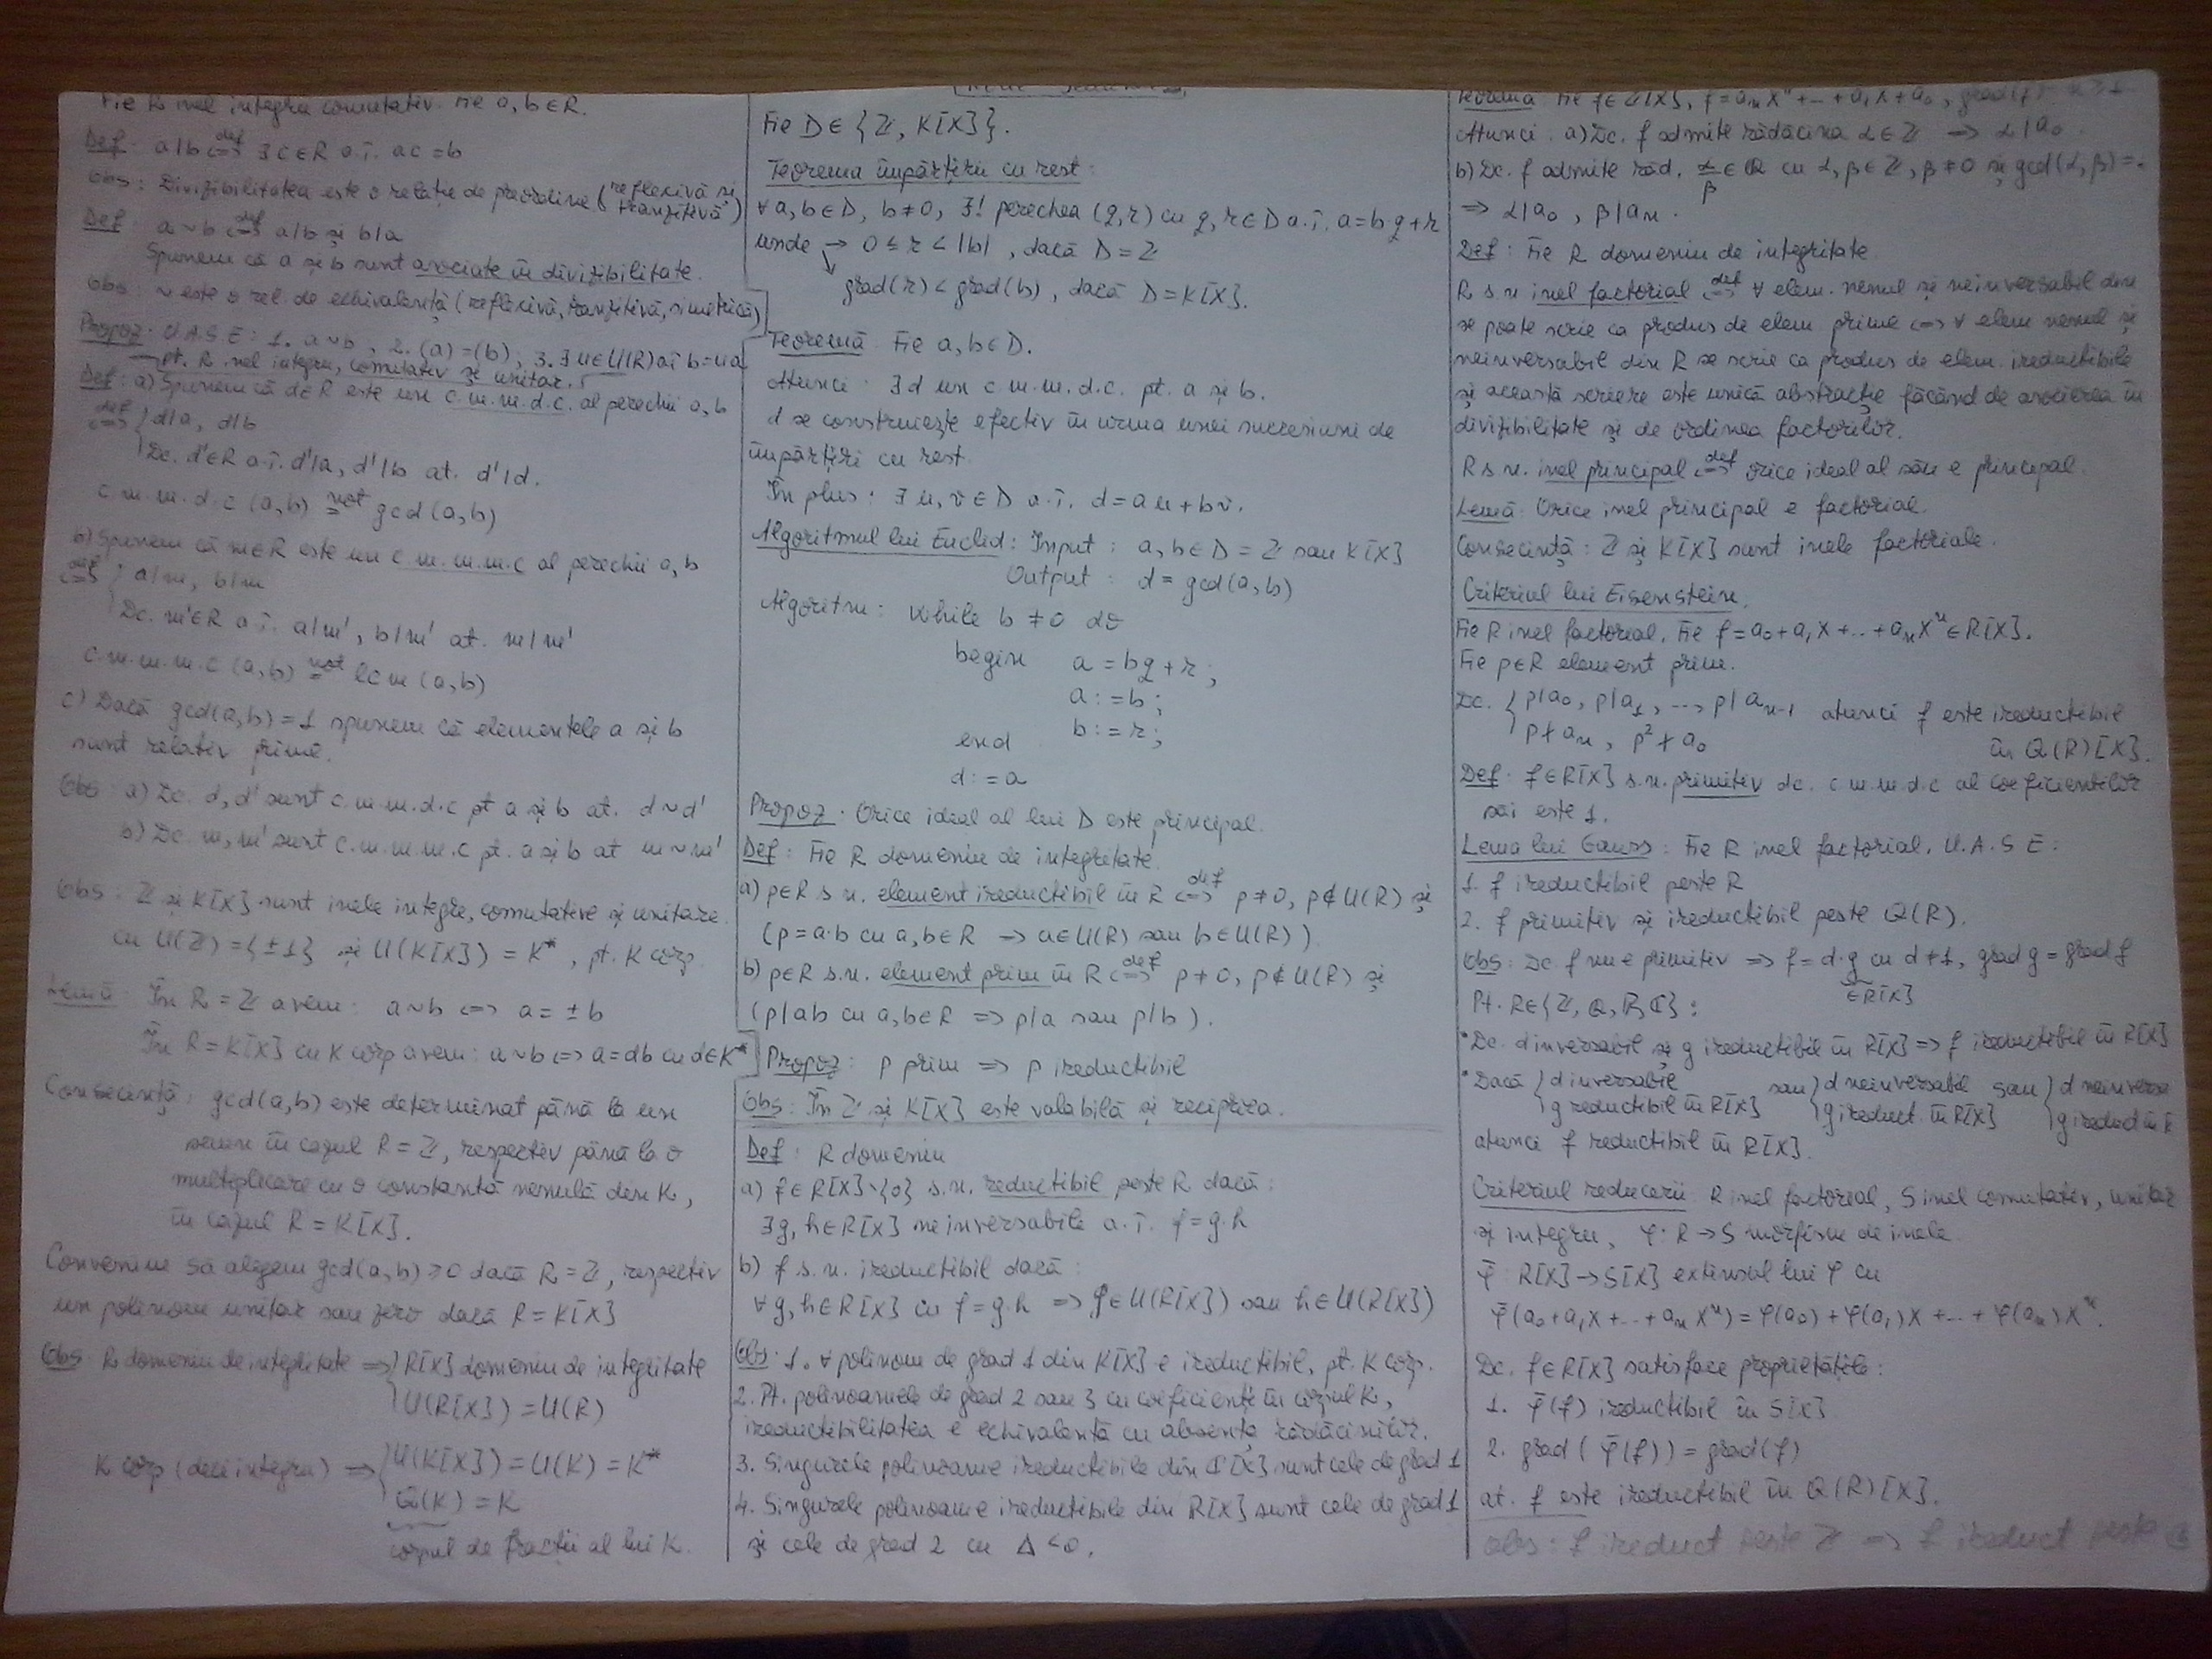 Fie R inel integru comutativ. Fie a, b ∈ R.
Def: a|b <=>def ∃ c ∈ R a.î. ac = b
Obs: Divizibilitatea este o relație de preordine (reflexivă și tranzitivă)
Def: a ~ b <=>def a|b și b|a
Spunem că a și b sunt asociate în divizibilitate.
Obs: ~ este o rel. de echivalență (reflexivă, tranzitivă, simetrică)
Propoz. U.A.S.E: 1. a ~ b, 2. (a) = (b); 3. ∃ u ∈ U(R) aî b = ua
pt. R inel integru, comutativ și unitar.
Def: a) Spunem că d ∈ R este un c.m.m.d.c. al perechii a, b
<=>def { d|a, d|b
Dc. d' ∈ R a.î. d'|a, d'|b at. d'|d.
c.m.m.d.c (a,b) =not gcd (a,b)
b) Spunem că m ∈ R este un c.m.m.m.c al perechii a, b
<=>def { a|m, b|m
Dc. m' ∈ R a.î. a|m', b|m' at. m|m'
c.m.m.m.c (a,b) =not lcm (a,b)
c) Dacă gcd(a,b) = 1 spunem că elementele a și b
sunt relativ prime.
Obs: a) Dc. d, d' sunt c.m.m.d.c pt a și b at. d ~ d'
b) Dc. m, m' sunt c.m.m.m.c pt. a și b at m ~ m'
Obs: ℤ și K[X] sunt inele integre, comutative și unitare
cu U(ℤ) = {±1} și U(K[X]) = K*, pt. K corp.
Lemă: În R = ℤ avem: a ~ b <=> a = ± b
În R = K[X] cu K corp avem: a ~ b <=> a = db cu d ∈ K*
Consecință: gcd(a,b) este determinat până la un
semn în cazul R = ℤ, respectiv până la o
multiplicare cu o constantă nenulă din K,
în cazul R = K[X].
Convenim să alegem gcd(a,b) ≥ 0 dacă R = ℤ, respectiv
un polinom unitar sau zero dacă R = K[X]
Obs: R domeniu de integritate => { R[X] domeniu de integritate
U(R[X]) = U(R)
K corp (deci integru) => { U(K[X]) = U(K) = K*
Q(K) = K
corpul de fracții al lui K.
Fie D ∈ {ℤ, K[X]}.
Teorema împărțirii cu rest:
∀ a, b ∈ D, b ≠ 0, ∃! perechea (q, r) cu q, r ∈ D a.î. a = bq + r
unde → 0 ≤ r < |b|, dacă D = ℤ
↘ grad(r) < grad(b), dacă D = K[X].
Teoremă: Fie a, b ∈ D.
Atunci: ∃ d un c.m.m.d.c. pt. a și b.
d se construiește efectiv în urma unei succesiuni de
împărțiri cu rest.
În plus: ∃ u, v ∈ D a.î. d = au + bv.
Algoritmul lui Euclid: Input: a, b ∈ D = ℤ sau K[X]
Output: d = gcd(a,b)
Algoritm: While b ≠ 0 do
begin a = bq + r;
a := b;
b := r;
end
d := a
Propoz: Orice ideal al lui D este principal.
Def: Fie R domeniu de integritate.
a) p ∈ R s.n. element ireductibil în R <=>def p ≠ 0, p ∉ U(R) și
(p = a·b cu a, b ∈ R => a ∈ U(R) sau b ∈ U(R))
b) p ∈ R s.n. element prim în R <=>def p ≠ 0, p ∉ U(R) și
(p|ab cu a, b ∈ R => p|a sau p|b).
Propoz: p prim => p ireductibil
Obs: În ℤ și K[X] este valabilă și reciproca.
Def: R domeniu
a) f ∈ R[X]\{0} s.n. reductibil peste R dacă:
∃ g, h ∈ R[X] neinversabile a.î. f = g·h
b) f s.n. ireductibil dacă:
∀ g, h ∈ R[X] cu f = g·h => g ∈ U(R[X]) sau h ∈ U(R[X])
Obs: 1. ∀ polinom de grad 1 din K[X] e ireductibil, pt. K corp.
2. Pt. polinoamele de grad 2 sau 3 cu coeficienți în corpul K,
ireductibilitatea e echivalentă cu absența rădăcinilor.
3. Singurele polinoame ireductibile din ℂ[X] sunt cele de grad 1
4. Singurele polinoame ireductibile din R[X] sunt cele de grad 1
și cele de grad 2 cu Δ < 0.
Teoremă: Fie f ∈ ℤ[X], f = aₙXⁿ + ... + a₁X + a₀, grad(f)
Atunci: a) Dc. f admite rădăcina α ∈ ℤ => α|a₀.
b) Dc. f admite răd. α/β ∈ ℚ cu α, β ∈ ℤ, β ≠ 0 și gcd(α, β) =
=> α|a₀, β|aₙ.
Def: Fie R domeniu de integritate.
R s.n inel factorial <=>def ∀ elem. nenul și neinversabil din
se poate scrie ca produs de elem prime <=> ∀ elem nenul și
neinversabil din R se scrie ca produs de elem. ireductibile
și această scriere este unică abstracție făcând de asocierea în
divizibilitate și de ordinea factorilor.
R s.n. inel principal <=>def orice ideal al său e principal.
Lemă: Orice inel principal e factorial.
Consecință: ℤ și K[X] sunt inele factoriale.
Criteriul lui Eisenstein.
Fie R inel factorial. Fie f = a₀ + a₁X + ... + aₙXⁿ ∈ R[X].
Fie p ∈ R element prim.
Dc. { p|a₀, p|a₁, ..., p|aₙ₋₁ atunci f este ireductibil
p∤aₙ, p²∤a₀ în Q(R)[X].
Def: f ∈ R[X] s.n. primitiv dc. c.m.m.d.c al coeficienților
săi este 1.
Lema lui Gauss: Fie R inel factorial. U.A.S E:
1. f ireductibil peste R
2. f primitiv și ireductibil peste Q(R).
Obs: Dc. f nu e primitiv => f = d·g cu d ≠ 1, grad g = grad f
∈ R[X]
Pt. R ∈ {ℤ, ℚ, ℝ, ℂ}:
• Dc. d inversabil și g ireductibil în R[X] => f ireductibil în R[X]
• Dacă { d inversabil sau { d neinversabil sau { d neinversa
g reductibil în R[X] g ireduct. în R[X] g ireduct în
atunci f reductibil în R[X].
Criteriul reducerii: R inel factorial, S inel comutativ, unitar
și integru, φ: R → S morfism de inele.
φ̄: R[X] → S[X] extinsul lui φ cu
φ̄(a₀ + a₁X + ... + aₙXⁿ) = φ(a₀) + φ(a₁)X + ... + φ(aₙ)Xⁿ.
Dc. f ∈ R[X] satisface proprietățile:
1. φ̄(f) ireductibil în S[X]
2. grad(φ̄(f)) = grad(f)
at. f este ireductibil în Q(R)[X].
obs: f ireduct peste ℤ => f ireduct peste